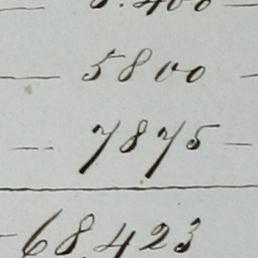 — 5800 —
— 7875 —
68,423